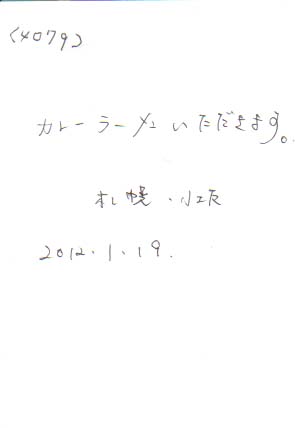 (4079)
カレーラーメンいただきます。
札幌・小坂
2012.1.19.